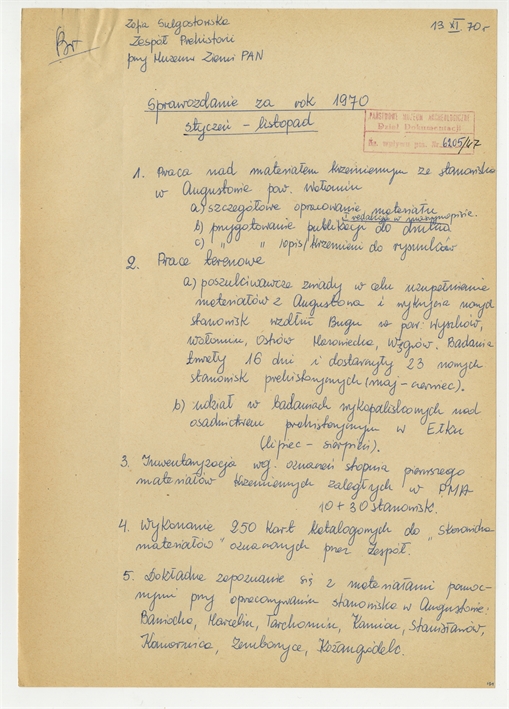 Zofia Sulgostowska
Zespół Prehistorii
przy Muzeum Ziemi PAN
13 XI 70 r
Br
Sprawozdanie za rok 1970
styczeń - listopad
PAŃSTWOWE MUZEUM ARCHEOLOGICZNE
Dział Dokumentacji
Nr. wpływu poz. Nr. 6205/47
1. Praca nad materiałem krzemiennym ze stanowiska
w Augustowie pow. Wołomin
a) szczegółowe opracowanie materiału
i redakcja w maszynopisie.
b) przygotowanie publikacji do druku
c) " " /opis/ krzemieni do rysunków
2. Prace terenowe
a) poszukiwawcze zwiady w celu uzupełnienia
materiałów z Augustowa i wykrycia nowych
stanowisk wzdłuż Bugu w pow. Wyszków,
Wołomin, Ostrów Mazowiecka, Węgrów. Badania
trwały 16 dni i dostarczyły 23 nowych
stanowisk prehistorycznych (maj - czerwiec).
b) udział w badaniach wykopaliskowych nad
osadnictwem prehistorycznym w Ełku
(lipiec - sierpień).
3. Inwentaryzacja wg. oznaczeń stopnia pierwszego
materiałów krzemiennych zaległych w PMA
10 + 30 stanowisk.
4. Wykonanie 250 kart katalogowych do „Skorowidza
materiałów" oznaczonych przez Zespół.
5. Dokładne zapoznanie się z materiałami pomoc-
nymi przy opracowywaniu stanowiska w Augustowie:
Baniocha, Marcelin, Tarchomin, Kamion, Stanisławów,
Komornica, Zemborzyce,